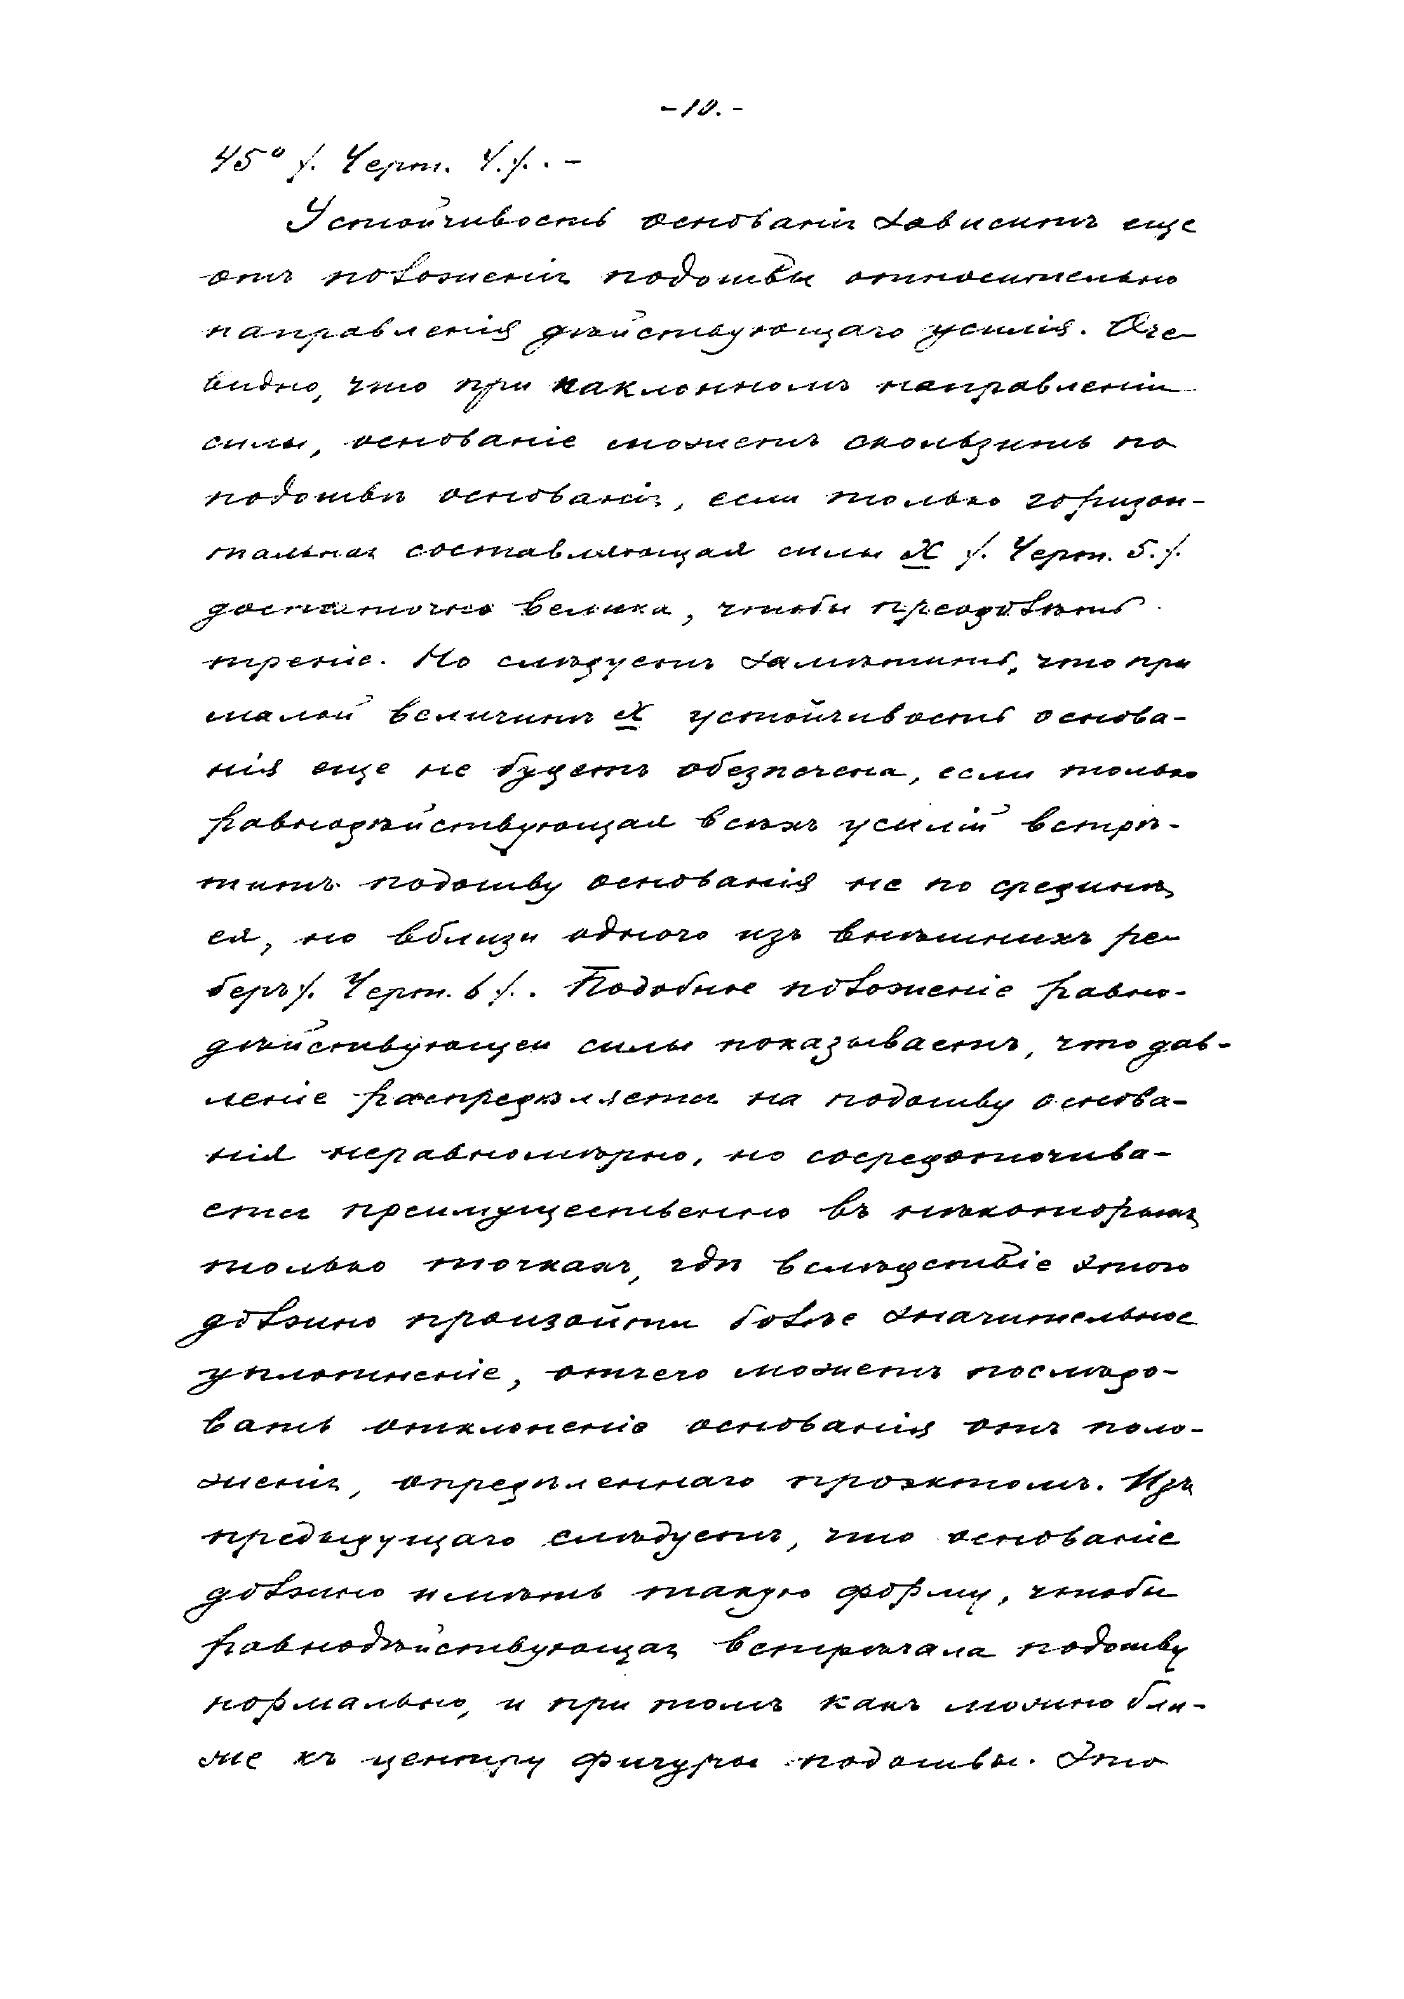 -10.-
45° /. Черт. 4./. -
Устойчивость основанія зависитъ еще
отъ положенія подошвы относительно
направленія дѣйствующаго усилія. Оче-
видно, что при наклонномъ направленіи
силы, основаніе можетъ скользить по
подошвѣ основанія, если только горизон-
тальная составляющая силы X /. Черт. 5./.
достаточно велика, чтобы преодолѣть
треніе. Но слѣдуетъ замѣтить, что при
малой величинѣ X устойчивость основа-
нія еще не будетъ обезпечена, если только
равнодѣйствующая всѣхъ усилій встрѣ-
титъ подошву основанія не по срединѣ
ея, но вблизи одного изъ внѣшнихъ ре-
беръ /. Черт. 6 /. . Подобное положеніе равно-
дѣйствующей силы показываетъ, что дав-
леніе распредѣляется на подошву основа-
нія неравномѣрно, но сосредоточива-
ется преимущественно въ нѣкоторыхъ
только точкахъ, гдѣ вслѣдствіе этого
должно произойти болѣе значительное
уплотненіе, отчего можетъ послѣдо-
вать отклоненіе основанія отъ поло-
женія, опредѣленнаго проэктомъ. Изъ
предыдущаго слѣдуетъ, что основаніе
должно имѣть такую форму, чтобы
равнодѣйствующая встрѣчала подошву
нормально, и при томъ какъ можно бли-
же къ центру фигуры подошвы. Это